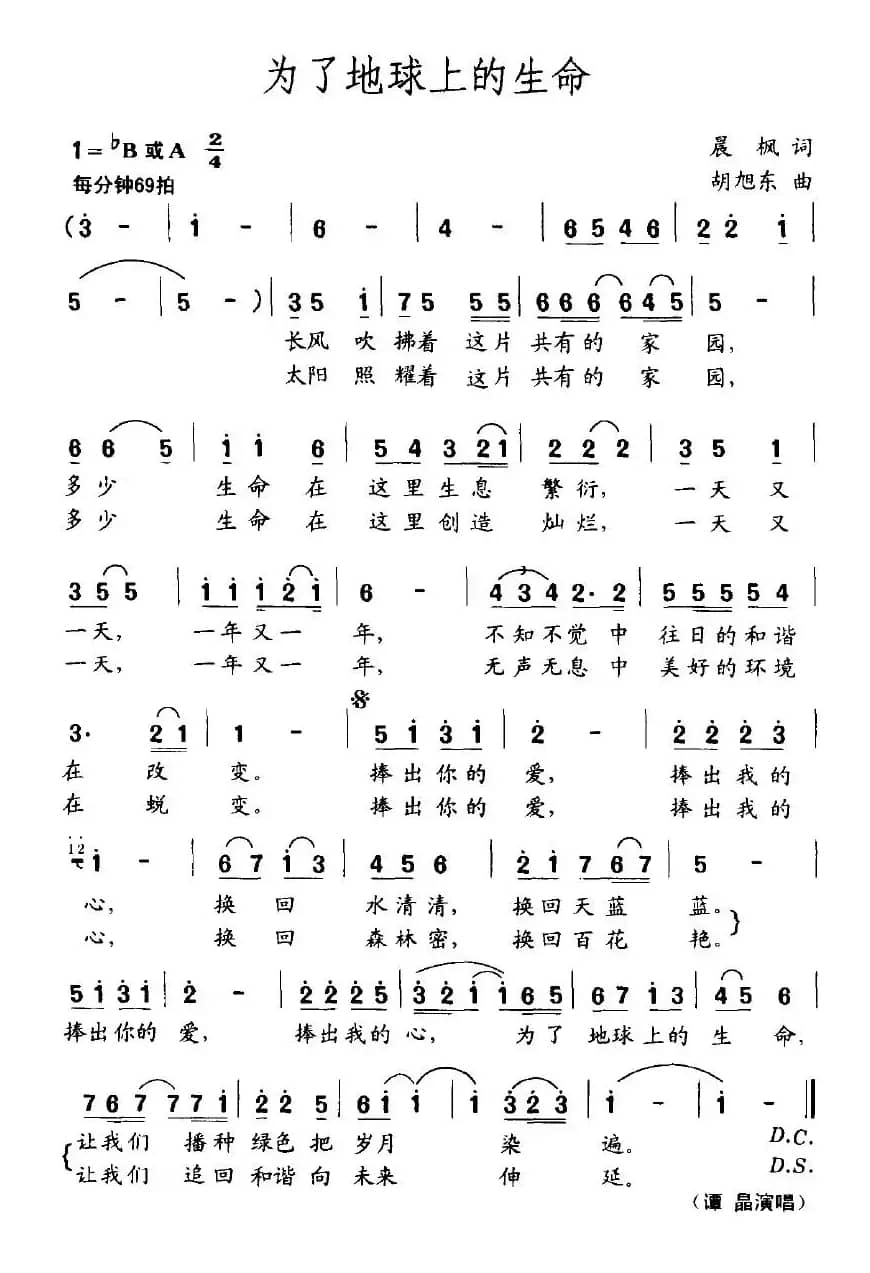 为了地球上的生命
1=♭B或A 2/4
晨 枫 词
每分钟69拍
胡旭东 曲
(3̇ - | 1̇ - | 6 - | 4 - | 6 5 4 6 | 2̇ 2̇ 1̇ |
5 - | 5 - ) | 3 5 1̇ | 7 5 5 5 | 6 6 6 6 4 5 | 5 - |
长风 吹 拂着 这片 共有的 家 园,
太阳 照 耀着 这片 共有的 家 园,
6 6 5 | 1̇ 1̇ 6 | 5 4 3 2 1 | 2 2 2 | 3 5 1̇ |
多少 生命 在 这里生息 繁衍, 一天 又
多少 生命 在 这里创造 灿烂, 一天 又
3 5 5 | 1̇ 1̇ 1̇ 2̇ 1̇ | 6 - | 4 3 4 2· 2 | 5 5 5 5 5 4 |
一天, 一年又一 年, 不知不觉 中 往日的和谐
一天, 一年又一 年, 无声无息 中 美好的环境
3· 2 1 | 1 - | 5 1̇ 3̇ 1̇ | 2̇ - | 2̇ 2̇ 2̇ 3̇ |
在 改 变。 捧出你的 爱, 捧出我的
在 蜕 变。 捧出你的 爱, 捧出我的
1̇2̇ 1̇ - | 6 7 1̇ 3 | 4 5 6 | 2̇ 1̇ 7 6 7 | 5 - |
心, 换 回 水清清, 换回天蓝 蓝。
心, 换 回 森林密, 换回百花 艳。
5 1̇ 3̇ 1̇ | 2̇ - | 2̇ 2̇ 2̇ 5̇ | 3̇ 2̇ 1̇ 1̇ 6 5 | 6 7 1̇ 3 | 4 5 6 |
捧出你的 爱, 捧出我的 心, 为了 地球上的 生 命,
7 6 7 7 7 1̇ | 2̇ 2̇ 5 | 6 1̇ 1̇ | 3̇ 2̇ 3̇ | 1̇ - | 1̇ - ‖
让我们 播种 绿色 把 岁月 染 遍。 D.C.
让我们 追回 和谐 向 未来 伸 延。 D.S.
(谭 晶演唱)